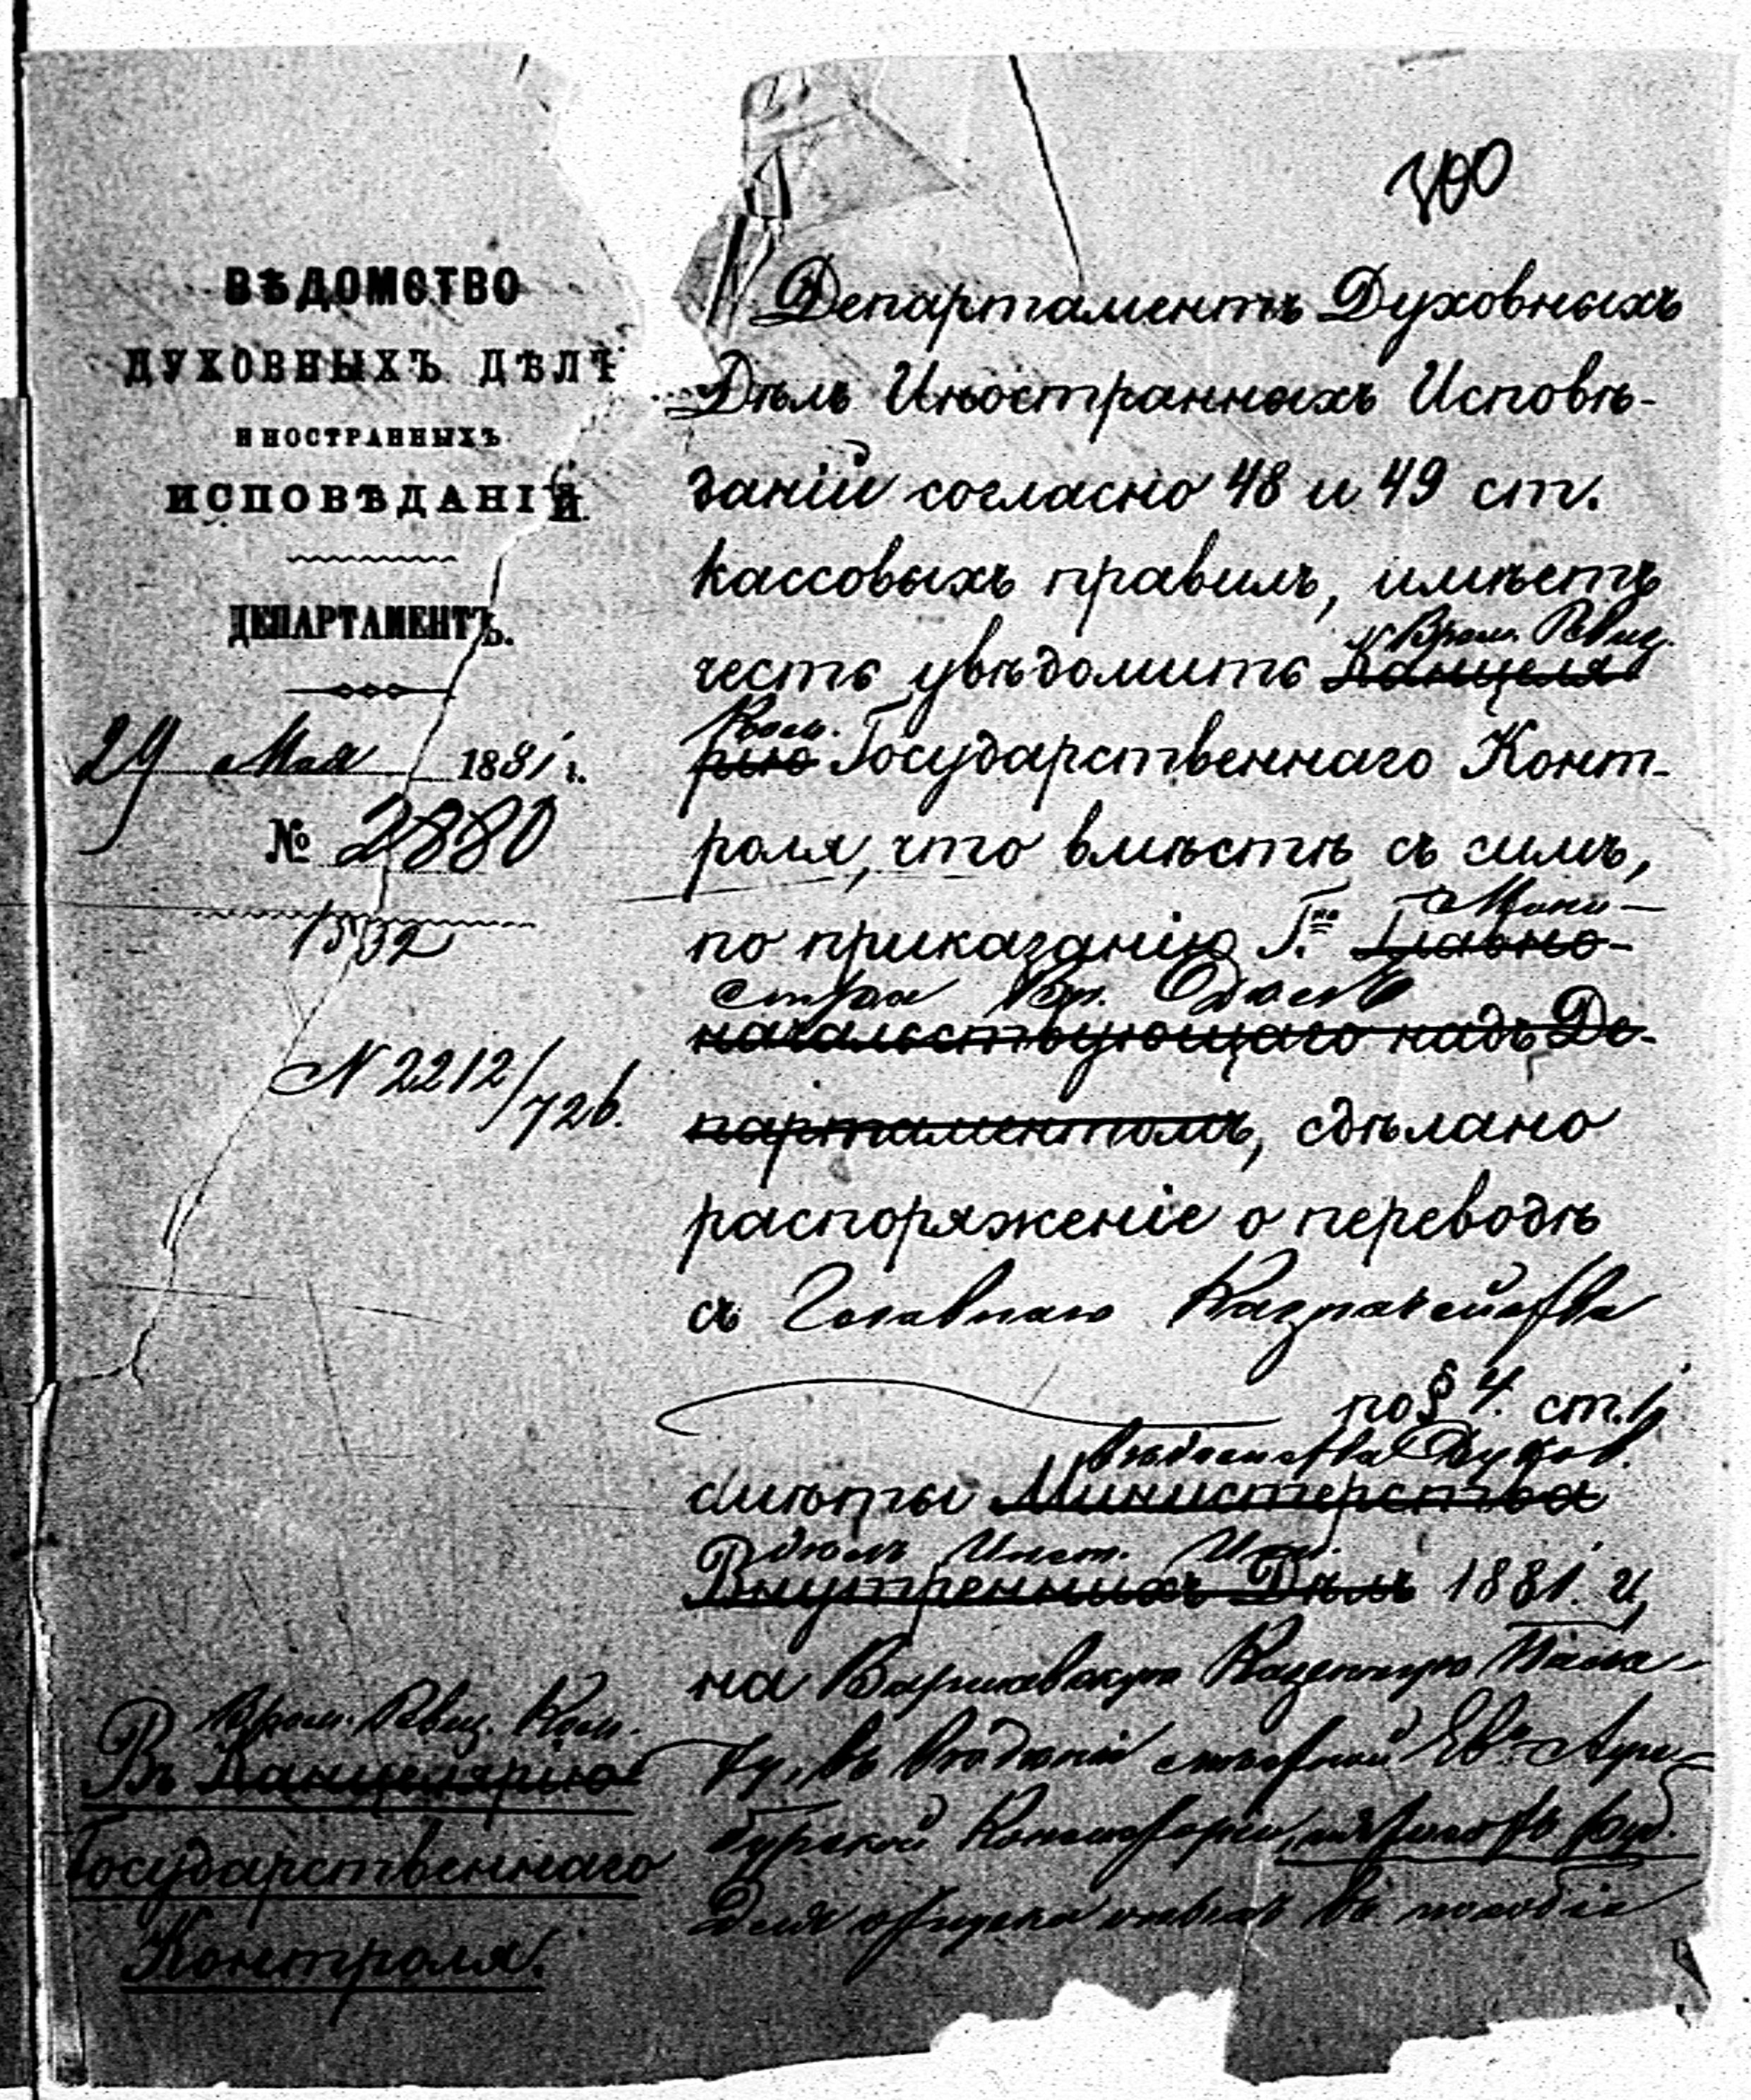 700
ВѢДОМСТВО
ДУХОВНЫХЪ ДѢЛЪ
ИНОСТРАННЫХЪ
ИСПОВѢДАНІЙ
ДЕПАРТАМЕНТЪ.
29 Мая 1881 г.
№ 2880
1532
N 2212/726.
Врем. Ревиз. Ком.
Въ Канцелярію
Государственнаго
Контроля.
Департаментъ Духовныхъ
Дѣлъ Иностранныхъ Исповѣ-
даній согласно 48 и 49 ст.
кассовыхъ правилъ, имѣетъ
Врем. Ревиз.
честь увѣдомить Канцеля
Ком.
рію Государственнаго Конт-
роля, что вмѣстѣ съ симъ,
Мини-
по приказанію Г.на Главно-
стра Вн. Дѣлъ
начальствующаго надъ Де-
партаментомъ, сдѣлано
распоряженіе о переводѣ
съ Главнаго Казначейства
по § 4. ст. 1
вѣдомства Духов.
смѣты Министерства
дѣлъ Иност. Исп.
Внутреннихъ Дѣлъ 1881. г,
на Варшавскую Казенную Пала-
ту, въ вѣдѣніи Ев.
Консисторіи, руб.
для въ пособіе